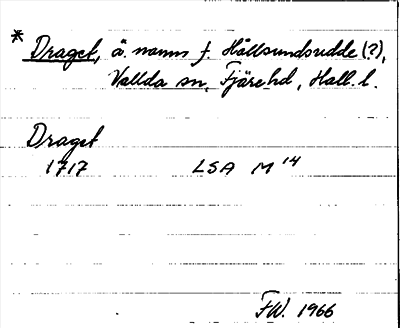 * Draget, ä. namn f. Hållsundsudde (?),
Vallda sn, Fjäre hd, Hall. l.
Draget
1717 LSA M 14
FW. 1966